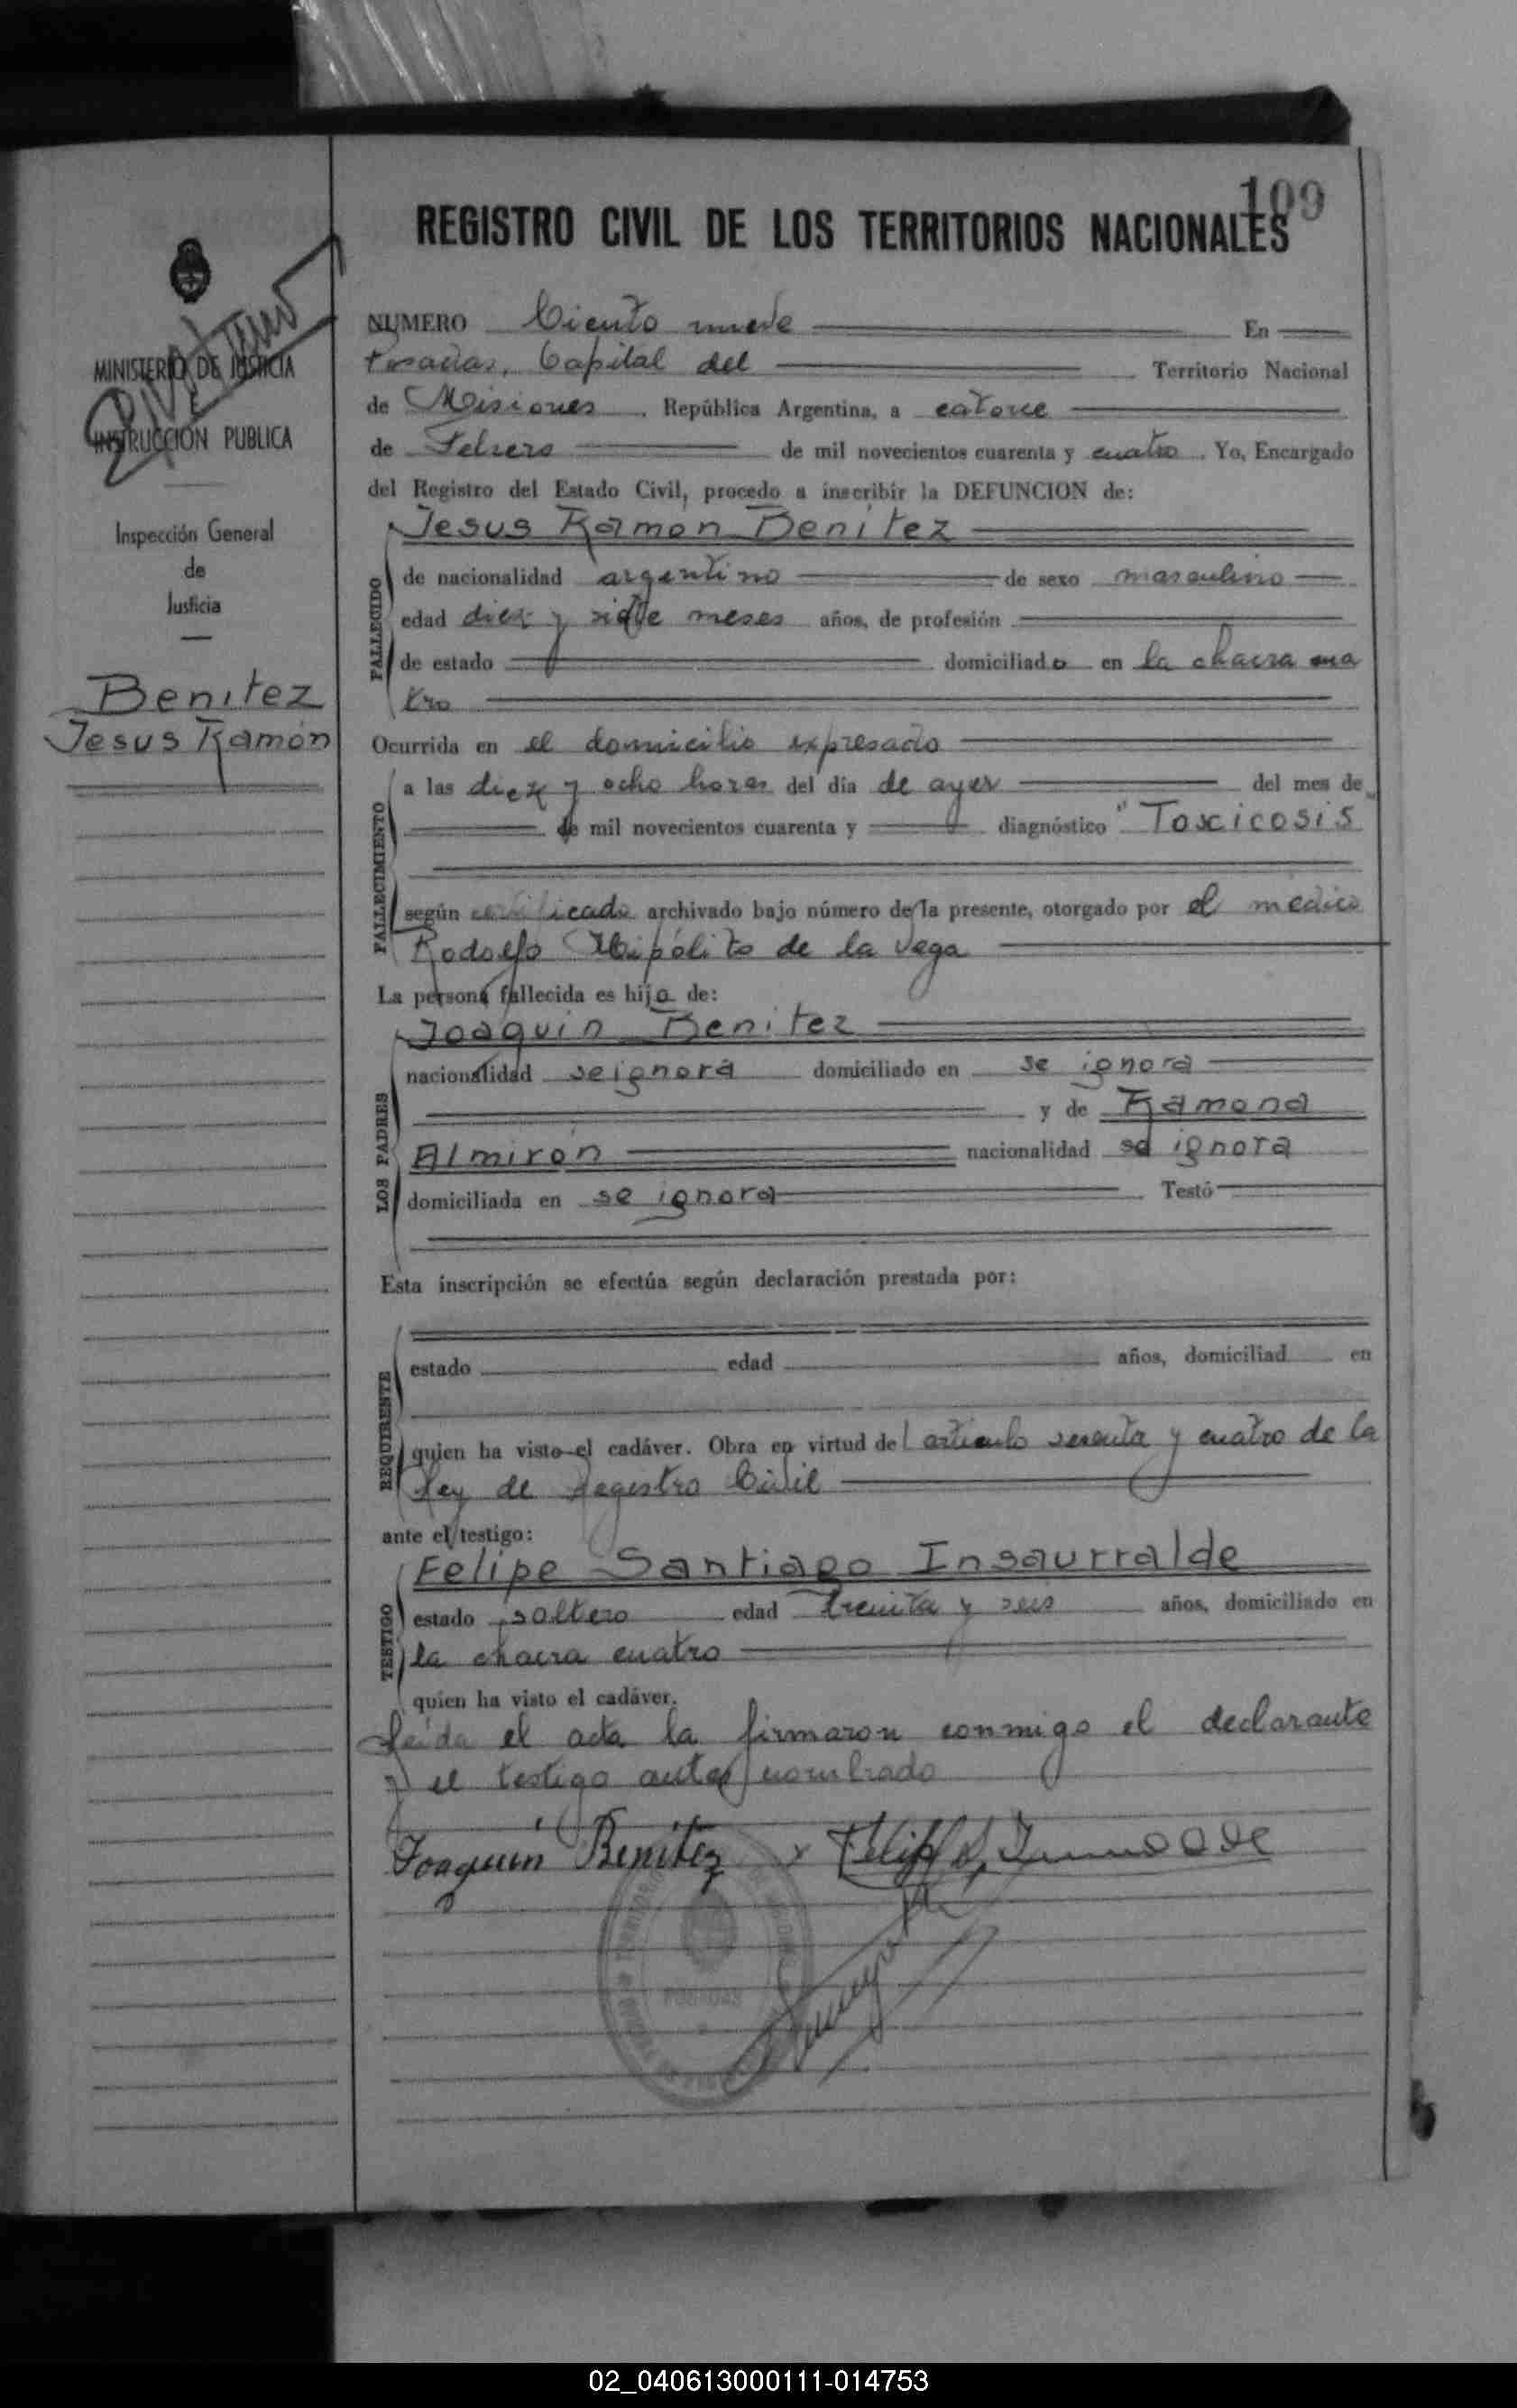 109
REGISTRO CIVIL DE LOS TERRITORIOS NACIONALES
MINISTERIO DE JUSTICIA
INSTRUCCION PUBLICA
Inspección General
de
Justicia
Benitez
Jesus Ramón
NUMERO Ciento nueve En
Posadas, Capital del Territorio Nacional
de Misiones. República Argentina, a catorce
de Febrero de mil novecientos cuarenta y cuatro. Yo, Encargado
del Registro del Estado Civil, procedo a inscribir la DEFUNCION de:
Jesus Ramon Benitez
FALLECIDO
de nacionalidad argentino de sexo masculino
edad diez y siete meses años, de profesión
de estado domiciliado en la chacra cua
tro
Ocurrida en el domicilio expresado
FALLECIMIENTO
a las diez y ocho horas del día de ayer del mes de
de mil novecientos cuarenta y diagnóstico "Toxcicosis
según certificado archivado bajo número de la presente, otorgado por el medico
Rodolfo Hipólito de la Vega
La persona fallecida es hijo de:
LOS PADRES
Joaquin Benitez
nacionalidad se ignora domiciliado en se ignora
y de Ramona
Almirón nacionalidad se ignora
domiciliada en se ignora Testó
Esta inscripción se efectúa según declaración prestada por:
REQUIRENTE
estado edad años, domiciliad en
quien ha visto el cadáver. Obra en virtud del articulo sesenta y cuatro de la
Ley de Registro Civil
ante el testigo:
TESTIGO
Felipe Santiago Insaurralde
estado soltero edad treinta y seis años, domiciliado en
la chacra cuatro
quien ha visto el cadáver.
Leída el acta la firmaron conmigo el declarante
y el testigo antes nombrado
Joaquin Benitez x Felipe S.
POSADAS
02_040613000111-014753